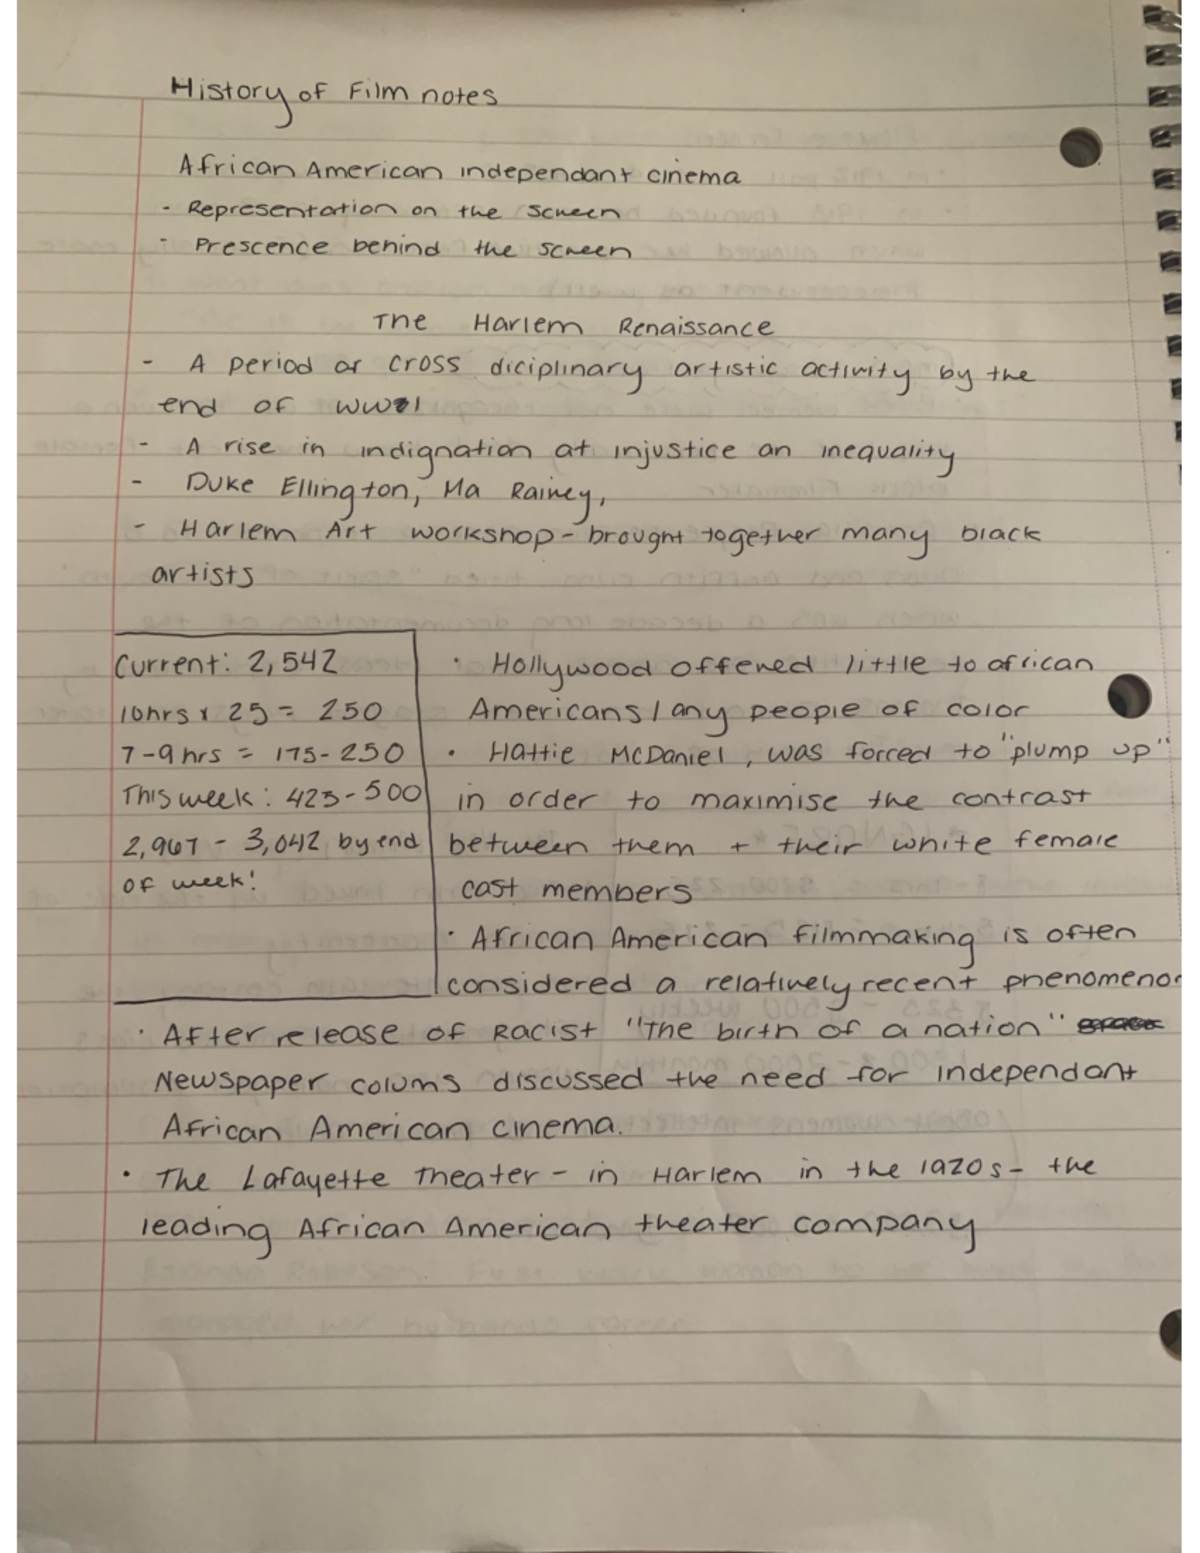 History of Film notes
African American independant cinema
- Representation on the screen
- Prescence behind the screen
The Harlem Renaissance
- A period of cross diciplinary artistic activity by the
end of WW1
- A rise in indignation at injustice an inequality
- Duke Ellington, Ma Rainey,
- Harlem Art workshop - brought together many black
artists
Current: 2,542
10hrs x 25 = 250
7-9 hrs = 175-250
This week: 425-500
2,967 - 3,042 by end
of week!
· Hollywood offered little to african
Americans / any people of color
· Hattie McDaniel, was forced to "plump up"
in order to maximise the contrast
between them + their white female
cast members
· African American filmmaking is often
considered a relatively recent phenomenon
· After release of Racist "The birth of a nation"
Newspaper colums discussed the need for independant
African American cinema.
· The Lafayette Theater - in Harlem in the 1920s - the
leading African American theater company